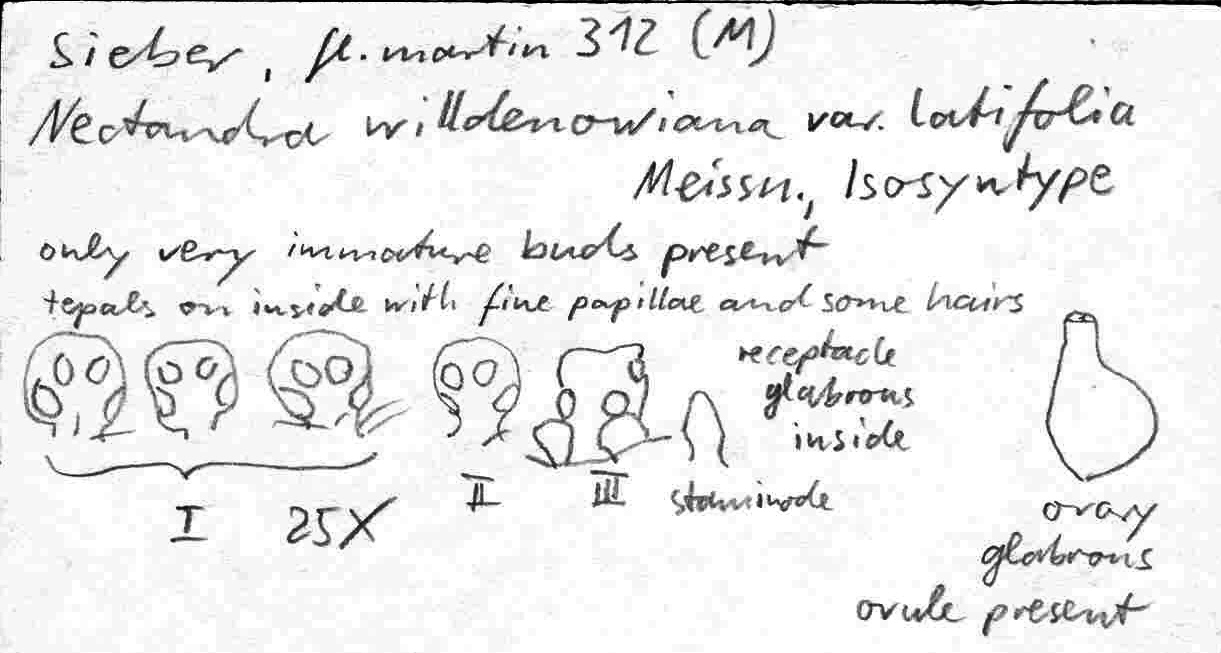 Sieber, fl. martin 312 (M)
Nectandra willdenowiana var. latifolia
Meissn., Isosyntype
only very immature buds present
tepals on inside with fine papillae and some hairs
receptacle
glabrous
inside
I 25X
II
III
staminode
ovary
glabrous
ovule present